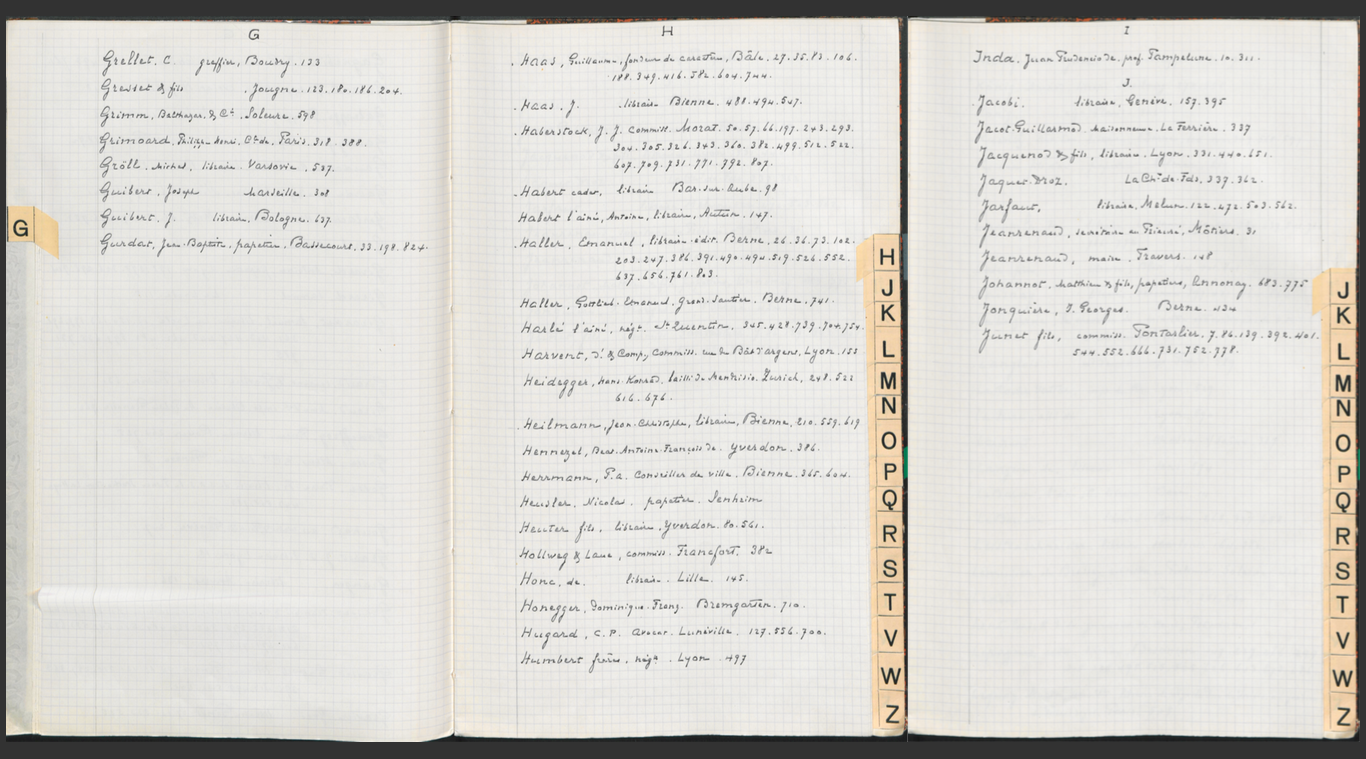 G
Grellet. C. greffier, Boudry. 133
Gresset & fils . Jougne. 123. 180. 186. 204.
Grimm, Balthazar, & Cie. Soleure. 598
Grimoard, Philipp-Henri, Cte de, Paris. 318. 388.
Gröll, Michel, libraire. Varsovie. 537.
Guibert, Joseph Marseille. 308
Guibert. J. libraire, Bologne. 637.
Gurdat, Jean-Baptiste. papetier. Bassecourt. 33. 198. 824.
G
H
Haas, Guillaume, fondeur de caractères, Bâle. 27. 35. 83. 106.
188. 349. 416. 582. 604. 744.
Haas, J. libraire Bienne. 488. 494. 507.
Haberstock, J. J. Commiss. Morat. 50. 57. 66. 197. 243. 293.
304. 305. 326. 343. 360. 382. 499. 512. 522.
607. 709. 731. 771. 792. 807.
Habert cadet, libraire Bar-sur-Aube. 98
Habert l'ainé, Antoine, libraire, Autun. 147.
Haller, Emanuel, libraire-édit. Berne, 26. 36. 73. 102.
203. 247. 386. 391. 490. 494. 519. 526. 552.
637. 656. 761. 803.
Haller, Gottlieb-Emanuel, Gross-Sautier, Berne. 741.
Harlé l'ainé, négt. St Quentin. 345. 428. 739. 704. 754.
Harvent, d'. & Comp, Commiss. rue du Bât d'argent, Lyon. 153
Heidegger, Hans-Konrad, bailli de Mendrisio. Zurich, 248. 522
616. 676.
Heilmann, Jean-Christophe, libraire, Bienne, 210. 559. 619
Hennezel, Beat-Antoine-François de. Yverdon. 386.
Herrmann, P. a. Conseiller de ville. Bienne. 365. 604.
Heusler, Nicolas. papetier. Senheim
Heuter fils, libraire, Yverdon. 80. 561.
Hollweg & Laue, commiss. Francfort. 382
Honc, de. libraire. Lille. 145.
Honegger, Dominique-Franz. Bremgarten. 710.
Hugard, C. P. avocat. Lunéville. 127. 556. 700.
Humbert frères. négts. Lyon. 497
H
J
K
L
M
N
O
P
Q
R
S
T
V
W
Z
I
Inda. Juan Prudencio de, prof. Pampelune. 10. 311.
J.
Jacobi. libraire, Genève. 157. 395
Jacot-Guillarmod. Maisonneuve. La Ferrière. 337
Jacquenod & fils, libraire. Lyon. 331. 440. 651.
Jaquet-Droz. La Chx-de-Fds, 337. 362.
Jarfaut, libraire, Melun. 122. 472. 503. 562.
Jeanrenaud, secrétaire au Prieuré, Môtiers. 31
Jeanrenaud, maire. Travers. 148
Johannot, Matthieu & fils, papetiers, Annonay. 683. 775
Jonquière, J. Georges. Berne. 434
Junet fils, commiss. Pontarlier. 7. 86. 139. 392. 401.
544. 552. 666. 731. 752. 778.
J
K
L
M
N
O
P
Q
R
S
T
V
W
Z